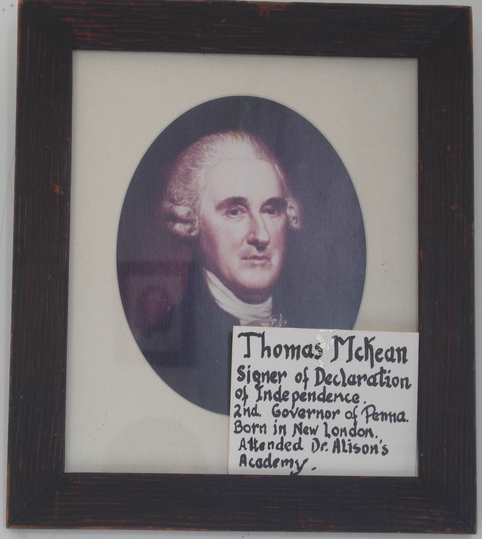 Thomas McKean
Signer of Declaration
of Independence.
2nd. Governor of Penna.
Born in New London.
Attended Dr. Alison's
Academy.